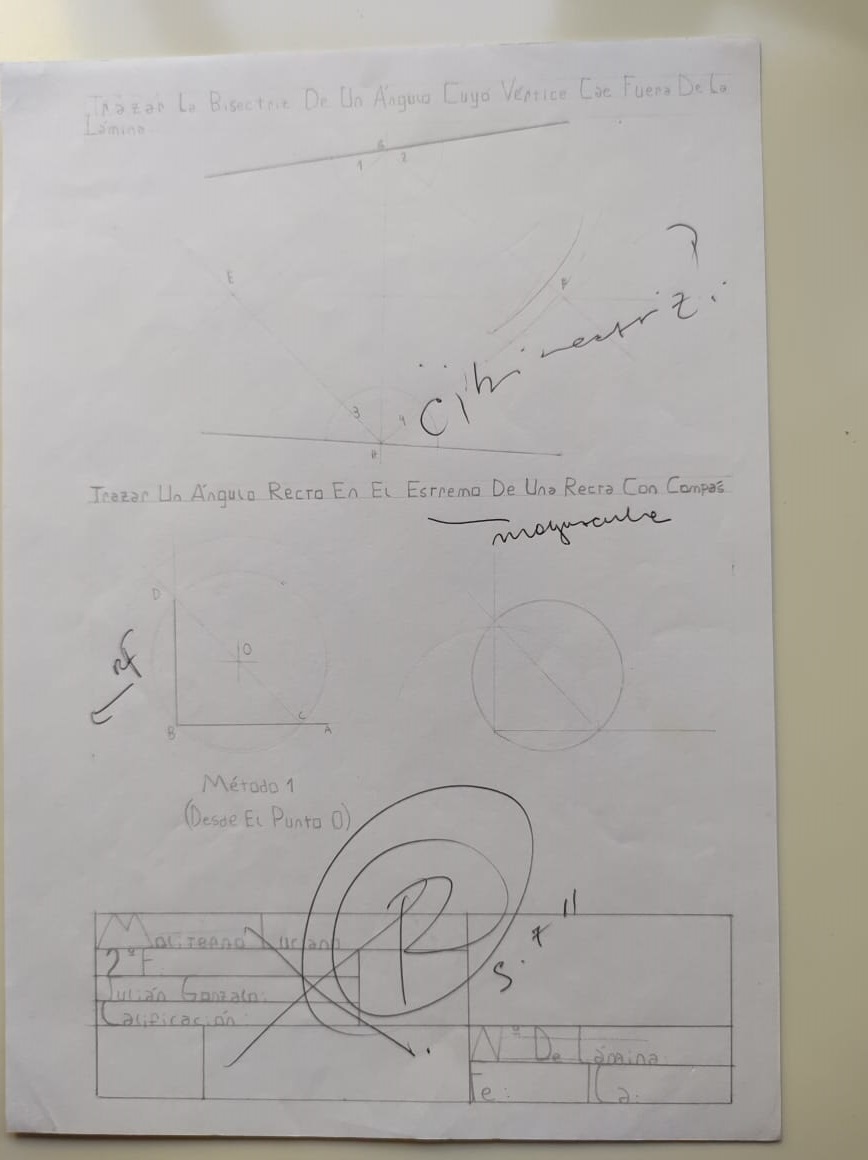 Trazar La Bisectriz De Un Ángulo Cuyo Vértice Cae Fuera De La
Lámina
G
1 2
E
F
¿
bisectriz ?
3 4
H
Trazar Un Ángulo Recto En El Estremo De Una Recta Con Compás
mayuscula
D
O
B C A
Método 1
(Desde El Punto O)
R
Moliterno Luciano
2ºF
Julián Gonzalo
Calificación
Nº De Lámina
Fe: Ca: